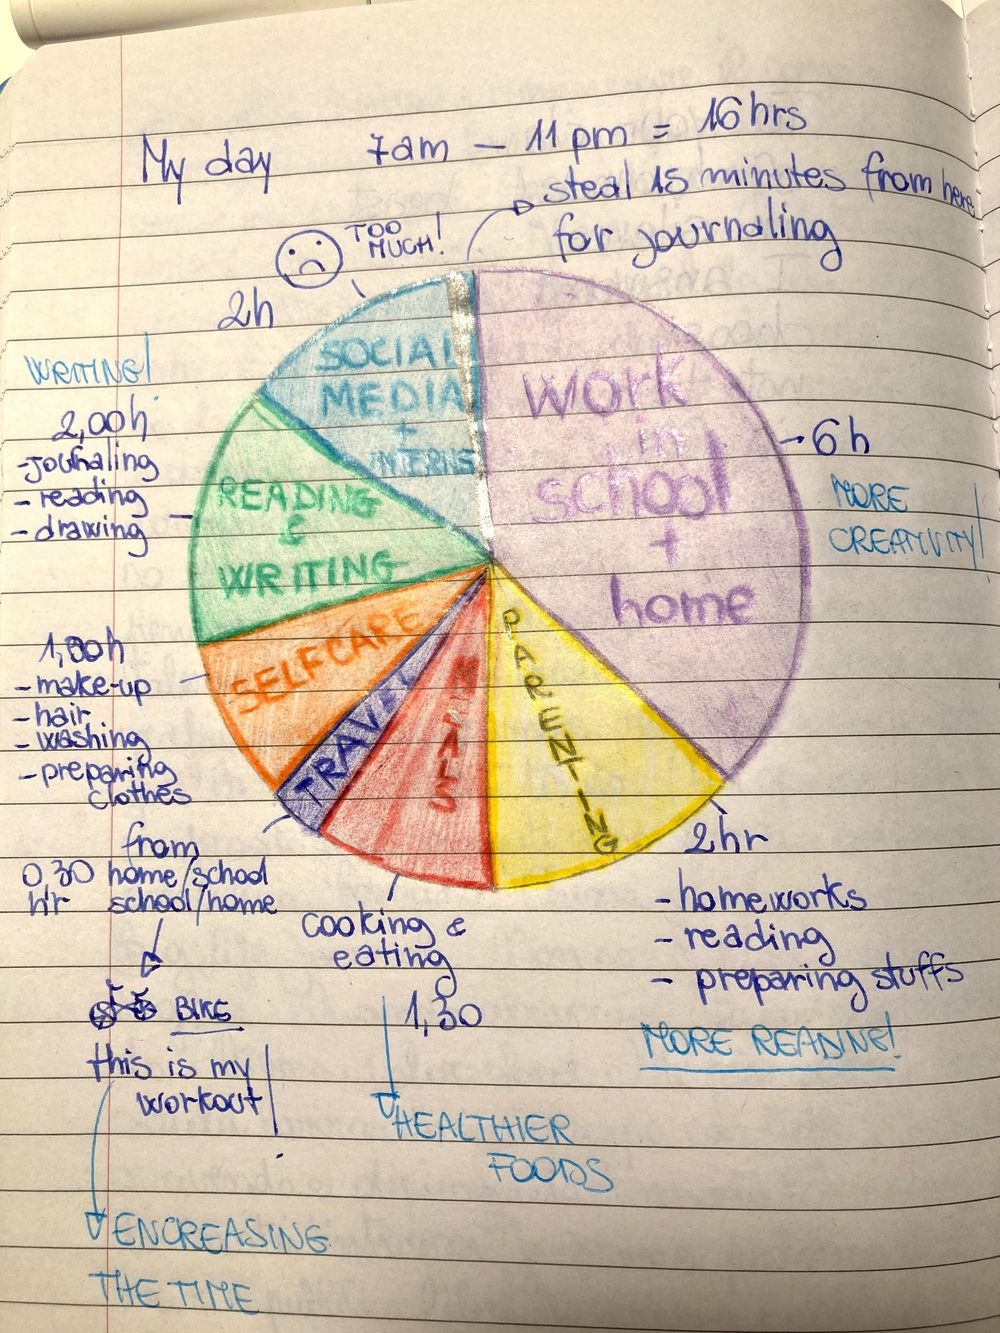 My day 7am - 11pm = 16hrs
steal 15 minutes from here
for journaling
TOO
MUCH!
2h
SOCIAL
MEDIA
+
work
in
school
+
home
6h
MORE
CREATIVITY!
WRITING!
2,00h
-journaling
- reading
- drawing
READING
&
WRITING
1,00h
- make-up
- hair
- washing
- preparing
clothes
SELFCARE
TRAVEL
MEALS
PARENTING
2hr
- homeworks
- reading
- preparing stuffs
MORE READING!
from
0,30 home/school
hr school/home
BIKE
this is my
workout!
ENCREASING
THE TIME
cooking &
eating
1,30
HEALTHIER
FOODS